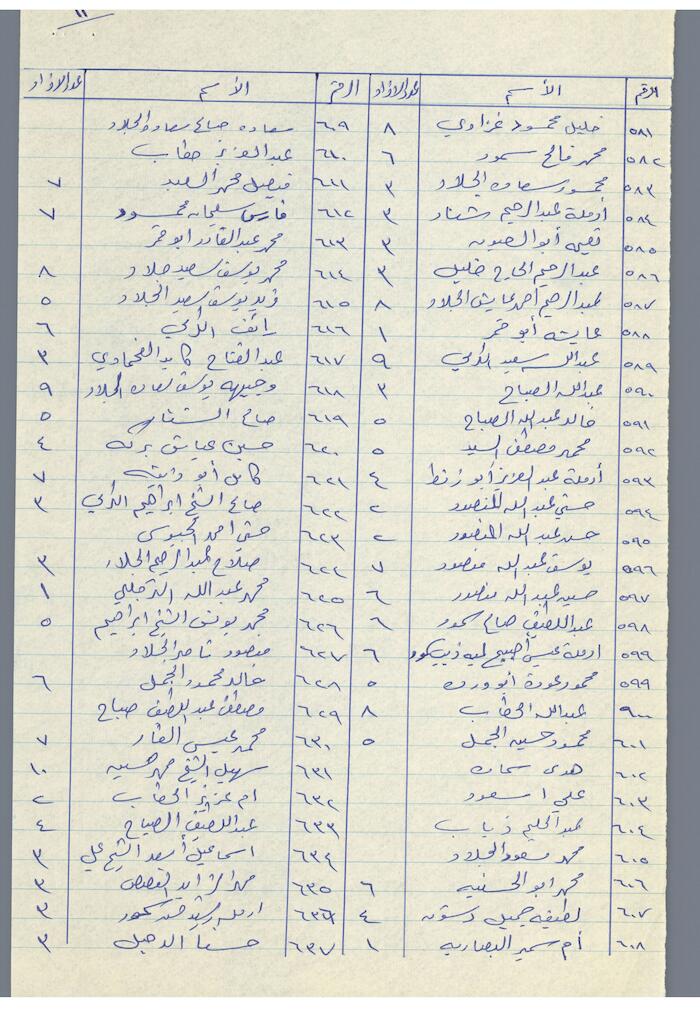 ١١
الرقم الأسم عدد الافراد الرقم الأسم عدد الافراد
٥٨١ خليل محمود غزاوي ٨ ٦٠٩ سعاده صالح سعاده الجلاد
٥٨٢ محمد فالح سمور ٦ ٦١٠ عبد العزيز حطاب
٥٨٣ محمود سعاده الجلاد ٣ ٦١١ فيصل محمد السعيد ٧
٥٨٤ أرملة عبد الرحيم شنار ٣ ٦١٢ فارس سليمان محمود ٧
٥٨٥ أبو ٣ ٦١٣ محمد عبد القادر ابو قمر
٥٨٦ عبد الرحيم الحاج خليل ٣ ٦١٤ محمد يوسف سعيد جلاد ٨
٥٨٧ عبد الرحيم أحمد عايش الجلاد ٨ ٦١٥ يوسف سعيد الجلاد ٥
٥٨٨ عايشه أبو قمر ١ ٦١٦ رائف الزكي ٦
٥٨٩ عبد الله سعيد الزكي ٩ ٦١٧ عبد الفتاح كايد الفحماوي ٣
٥٩٠ عبد الله الصباح ٣ ٦١٨ وجيهه يوسف سعاده الجلاد ٩
٥٩١ خالد عبد الله الصباح ٥ ٦١٩ صالح الشنار ٥
٥٩٢ محمد مصطفى السيد ٥ ٦٢٠ حسين عياش بركه ٤
٥٩٣ أرملة عبد العزيز أبو زنط ٤ ٦٢١ كامل أبو ٧
٥٩٤ حسني عبد الله المنصور ٢ ٦٢٢ صالح الشيخ ابراهيم الزكي ٣
٥٩٥ عبد الله المنصور ٢ ٦٢٣ احمد الجيوسي
٥٩٦ يوسف عبد الله منصور ٧ ٦٢٤ صلاح عبد الرحيم الجلاد ٣
٥٩٧ عبد الله منصور ٦ ٦٢٥ محمد عبد الله ١
٥٩٨ عبد اللطيف صالح سمور ٦ ٦٢٦ محمد يونس الشيخ ابراهيم ٥
٥٩٩ ارملة عيسى ٦ ٦٢٧ منصور ثامر الجلاد
٥٩٩ محمود عودة ابو ورده ٥ ٦٢٨ خالد محمود الجمل ٦
٩٠٠ عبد الله الحطاب ٨ ٦٢٩ مصطفى عبد اللطيف صباح
٦٠١ محمود حسين الجمل ٥ ٦٣٠ محمد عيسى الفار ٧
٦٠٢ هدى سماره ٦٣١ سهيل الشيخ محمد حسين ١٠
٦٠٣ علي اسعود ٦٣٢ ام عزيز الحطاب ٢
٦٠٤ عبد الحليم ذياب ٦٣٣ عبد اللطيف الصباح ٤
٦٠٥ محمد مسعود الجلاد ٦٣٤ اسماعيل أسعد الشيخ علي ٣
٦٠٦ محمد ابو الحسنيه ٦ ٦٣٥ محمد ٣
٦٠٧ لطيفه جميل ٤ ٦٣٦ ارملة رشيد سمور ٣
٦٠٨ أم سمير البصاريه ١ ٦٣٧ حسنا الدحبل ٣